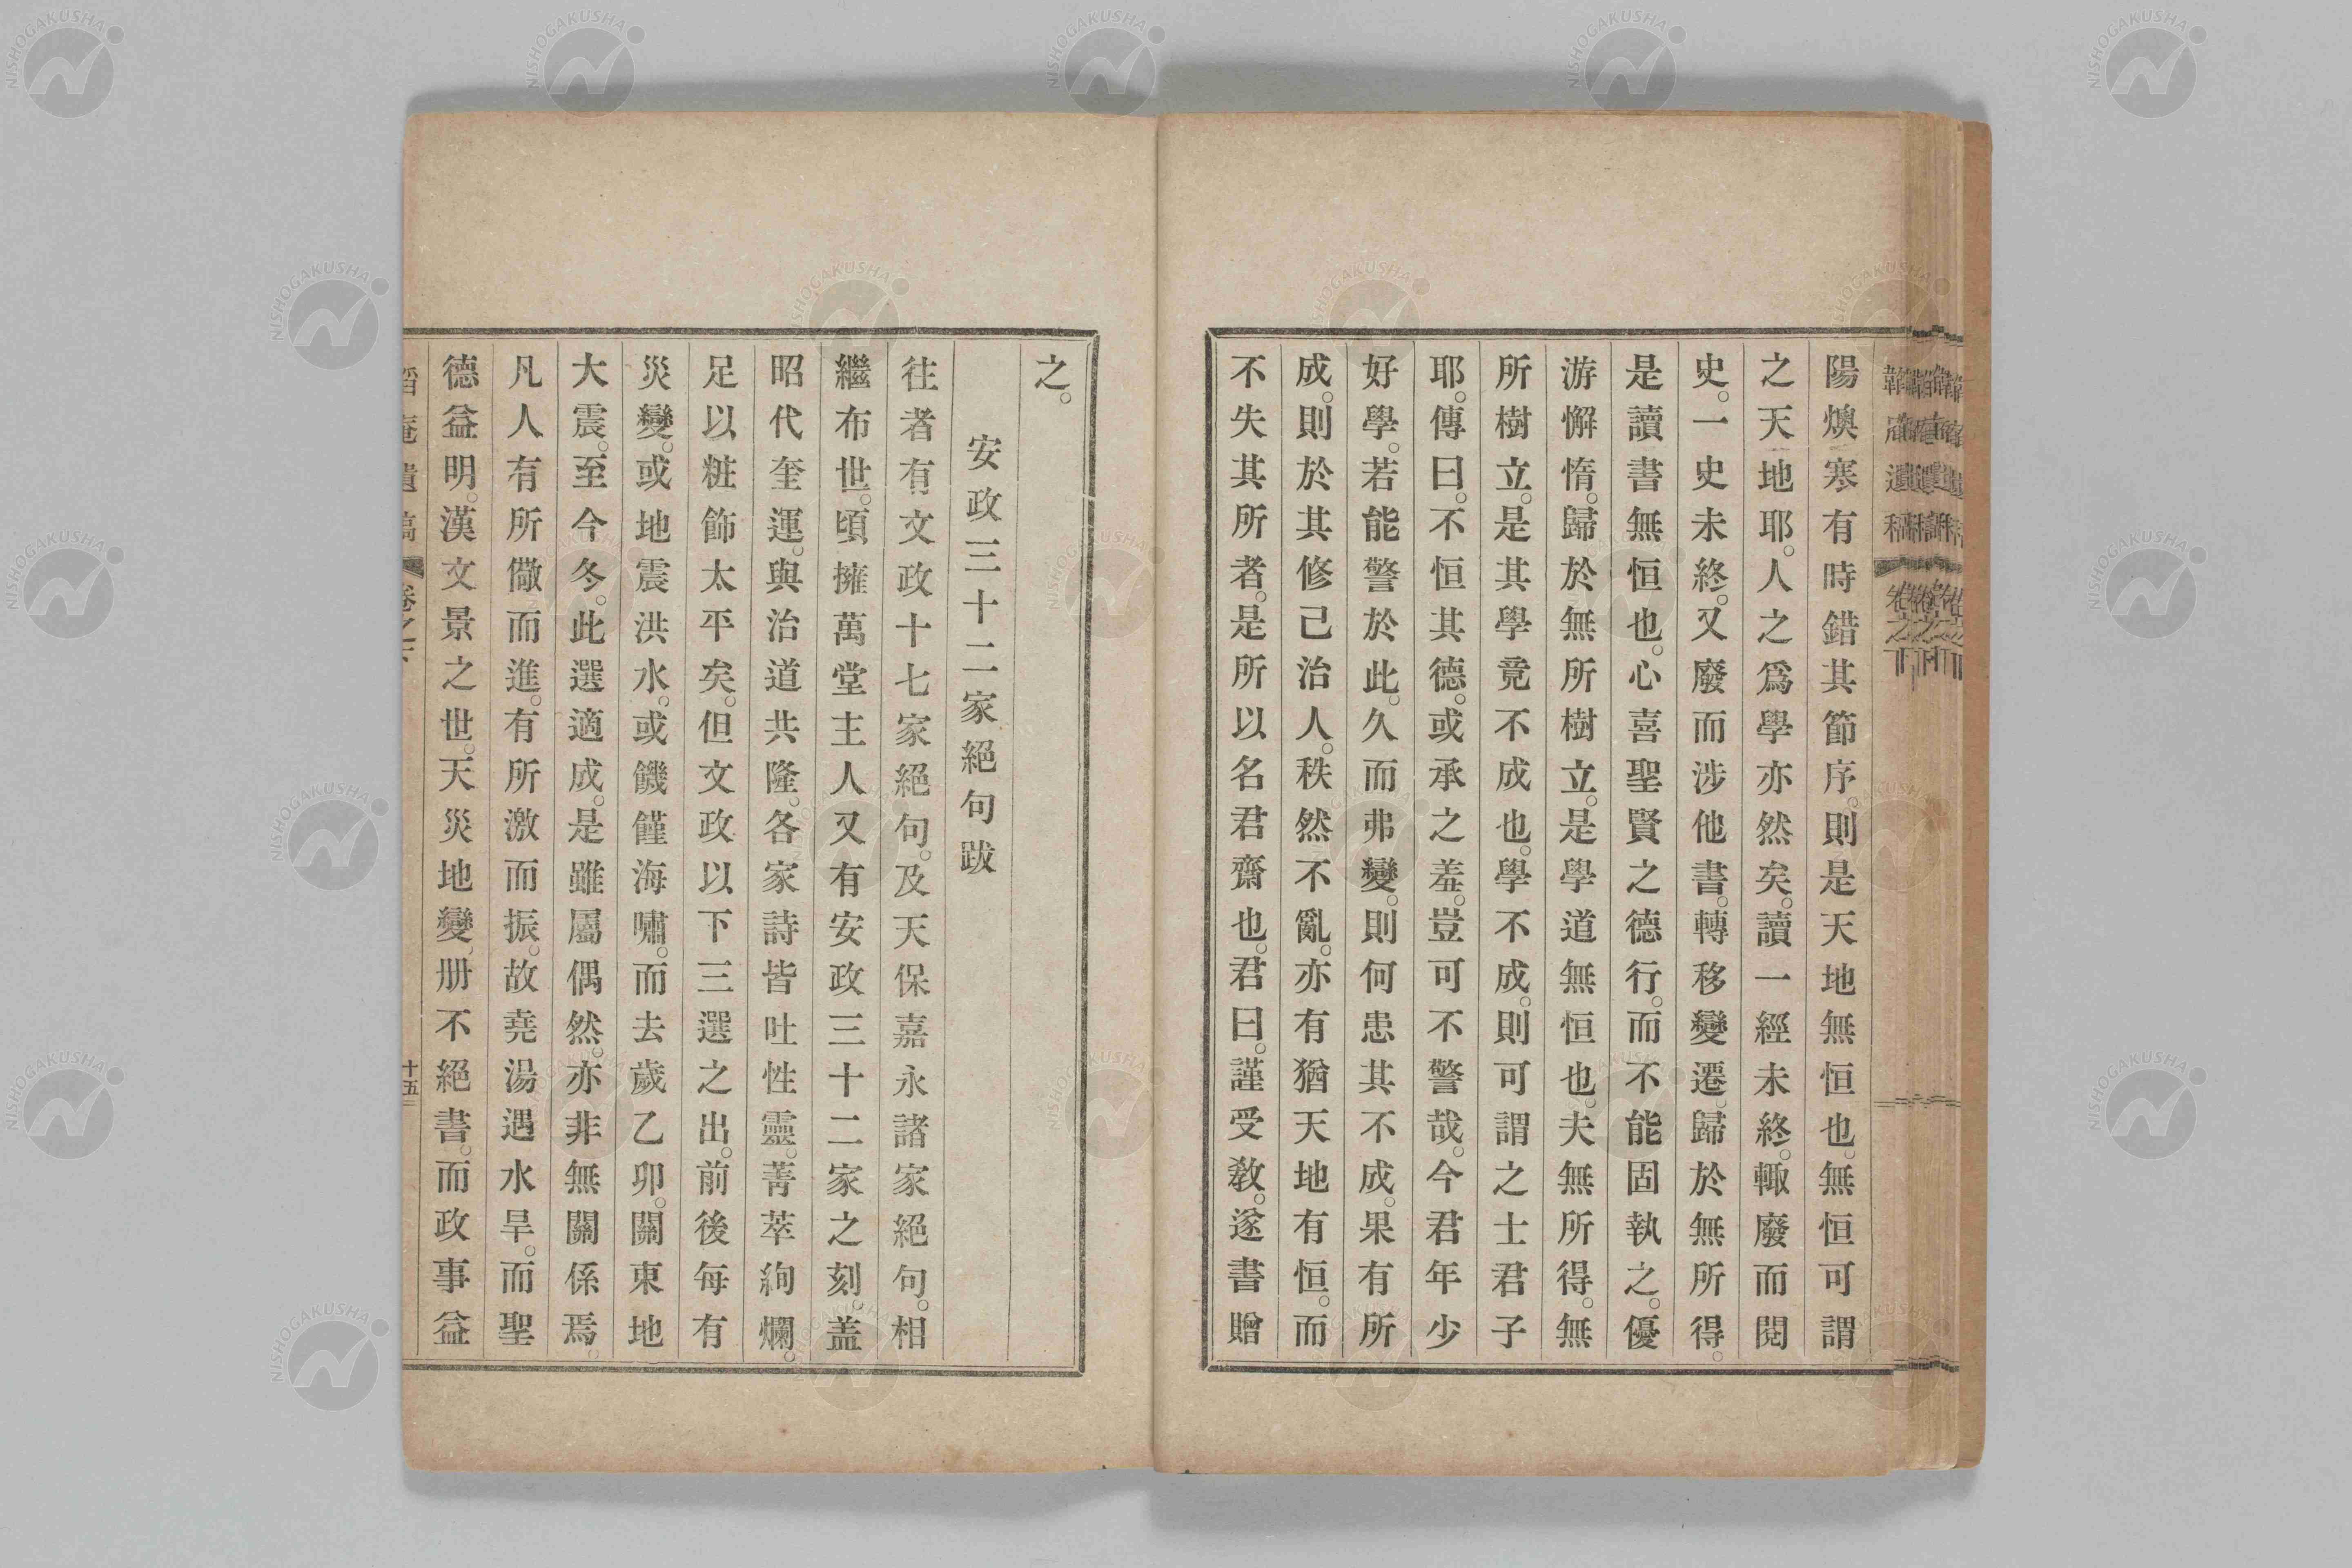 陽燠寒有時錯其節序。則是天地無恒也。無恒可謂
之天地耶。人之爲學亦然矣。讀一經未終。輙廢而閱
史。一史未終。又廢而涉他書。轉移變遷。歸於無所得。
是讀書無恒也。心喜聖賢之德行。而不能固執之。優
游懈惰。歸於無所樹立。是學道無恒也。夫無所得。無
所樹立。是其學竟不成也。學不成。則可謂之士君子
耶。傳曰。不恒其德。或承之羞。豈可不警哉。今君年少
好學。若能警於此。久而弗變。則何患其不成。果有所
成。則於其修己治人。秩然不亂。亦有猶天地有恒。而
不失其所者。是所以名君齋也。君曰。謹受教。遂書贈
之。
安政三十二家絕句跋
往者有文政十七家絕句。及天保嘉永諸家絕句。相
繼布世。頃擁萬堂主人又有安政三十二家之刻。盖
昭代奎運。與治道共隆。各家詩皆吐性靈。菁萃絢爛。
足以粧飾太平矣。但文政以下三選之出。前後每有
災變。或地震洪水。或饑饉海嘯。而去歲乙卯。關東地
大震。至今冬。此選適成。是雖屬偶然。亦非無關係焉。
凡人有所儆而進。有所激而振。故堯湯遇水旱。而聖
德益明。漢文景之世。天災地變、册不絕書。而政事益
卷之下
十五
NISHOGAKUSHA